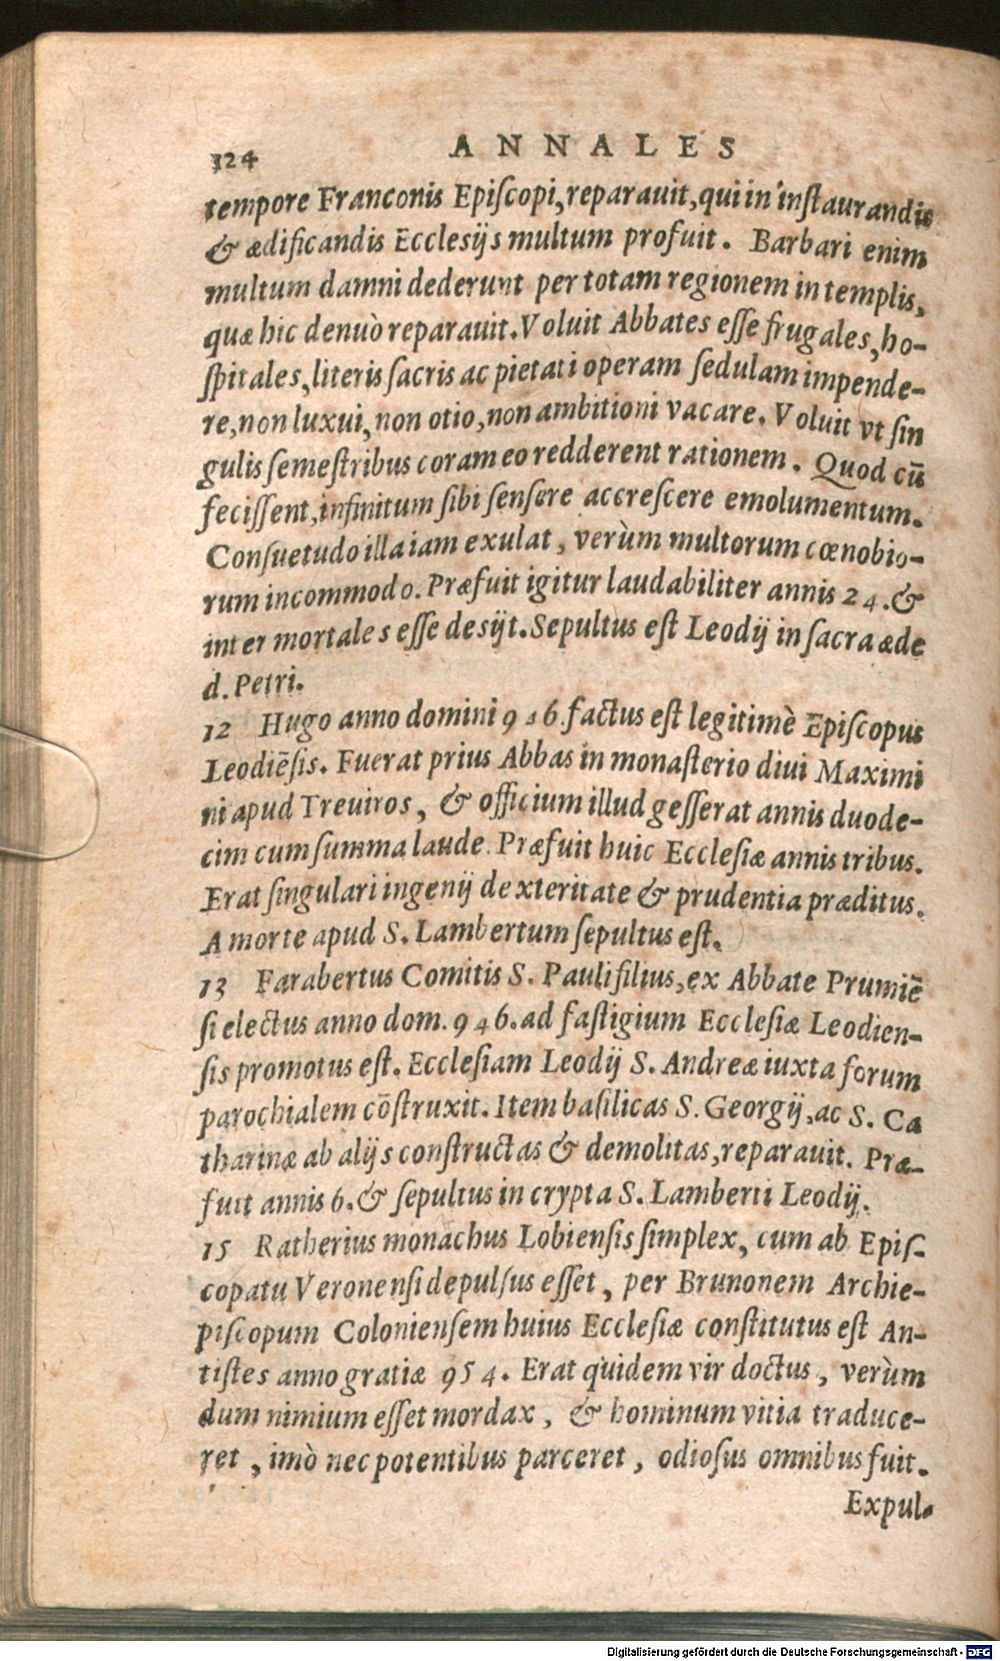 324 ANNALES
tempore Franconis Epiſcopi, reparauit, qui in inſtaurandis
& ædificandis Eccleſijs multum profuit. Barbari enim
multum damni dederunt per totam regionem in templis,
quæ hic denuò reparauit. Voluit Abbates eſſe frugales, ho-
ſpitales, literis ſacris ac pietati operam ſedulam impende-
re, non luxui, non otio, non ambitioni vacare. Voluit vt ſin
gulis ſemeſtribus coram eo redderent rationem. Quod cū
feciſſent, infinitum ſibi ſenſere accreſcere emolumentum.
Conſuetudo illa iam exulat, verùm multorum cœnobio-
rum incommodo. Præfuit igitur laudabiliter annis 24. &
inter mortales eſſe desijt. Sepultus eſt Leodij in ſacra æde
d. Petri.
12 Hugo anno domini 946. factus eſt legitimè Epiſcopus
Leodiēſis. Fuerat prius Abbas in monaſterio diui Maximi
ni apud Treuiros, & officium illud geſſerat annis duode-
cim cum ſumma laude. Præfuit huic Eccleſiæ annis tribus.
Erat ſingulari ingenij dexteritate & prudentia præditus.
A morte apud S. Lambertum ſepultus eſt.
13 Farabertus Comitis S. Pauli filius, ex Abbate Prumiē
ſi electus anno dom. 946. ad faſtigium Eccleſiæ Leodien-
ſis promotus eſt. Eccleſiam Leodij S. Andreæ iuxta forum
parochialem cōſtruxit. Item baſilicas S. Georgij, ac S. Ca
tharinæ ab alijs conſtructas & demolitas, reparauit. Præ-
fuit annis 6. & ſepultus in crypta S. Lamberti Leodij.
15 Ratherius monachus Lobienſis ſimplex, cum ab Epiſ-
copatu Veronenſi depulſus eſſet, per Brunonem Archie-
piſcopum Colonienſem huius Eccleſiæ conſtitutus eſt An-
tiſtes anno gratiæ 954. Erat quidem vir doctus, verùm
dum nimium eſſet mordax, & hominum vitia traduce-
ret, imò nec potentibus parceret, odioſus omnibus fuit.
Expul-
Digitalisierung gefördert durch die Deutsche Forschungsgemeinschaft - DFG